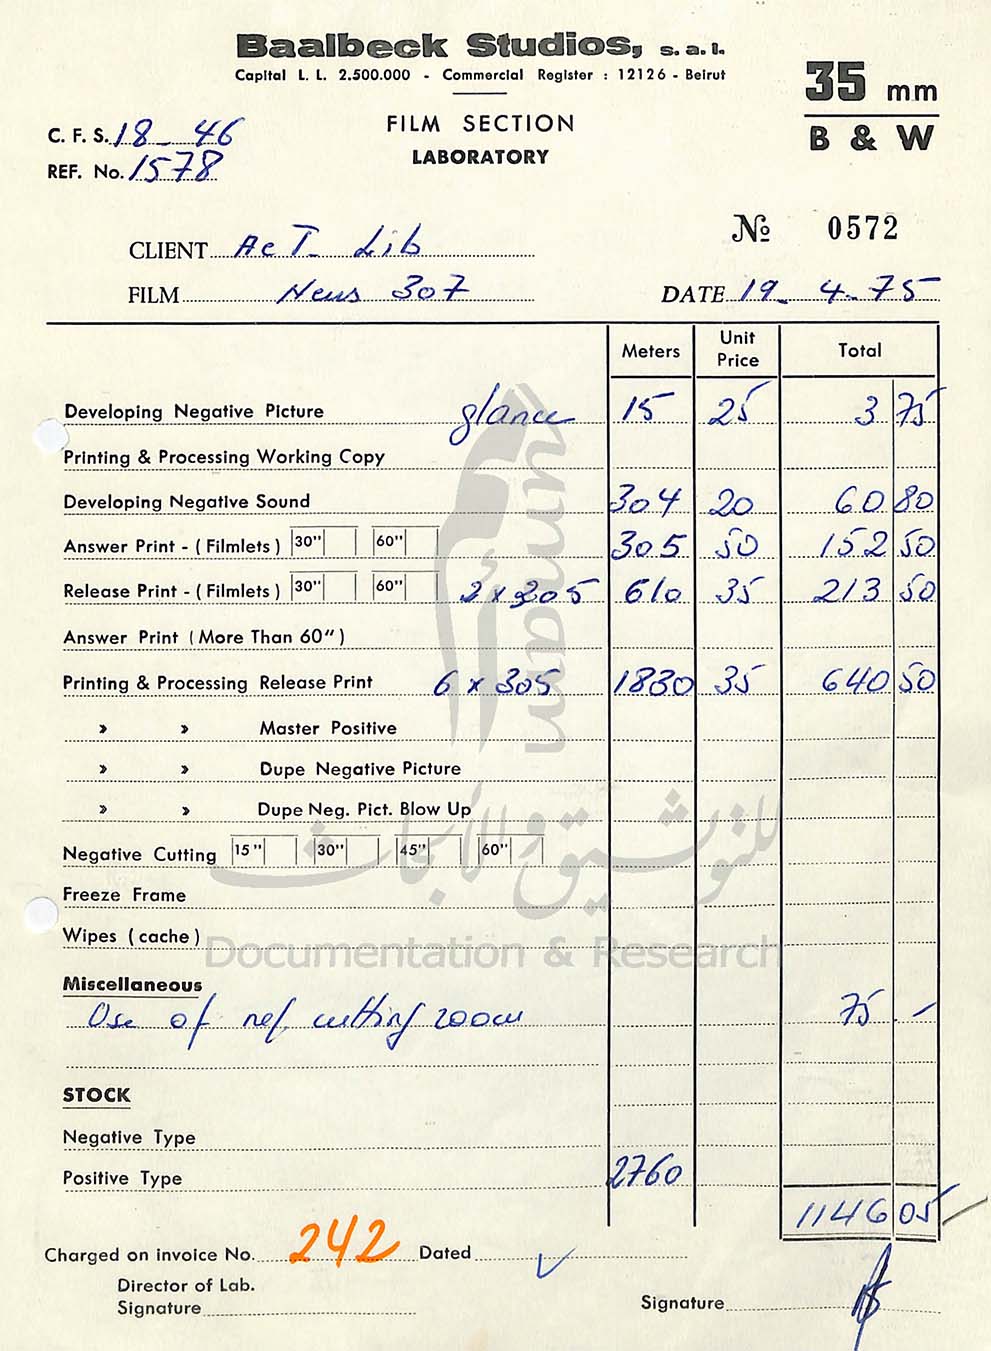 Baalbeck Studios, s.a.l.
Capital L. L. 2.500.000 - Commercial Register : 12126 - Beirut
35 mm
B & W
C. F. S. 18 - 46
REF. No. 1578
FILM SECTION
LABORATORY
№ 0572
CLIENT Act. Lib
FILM News 307
DATE 19 - 4 - 75
Meters Unit Price Total
Developing Negative Picture 15 25 3 75
Printing & Processing Working Copy
Developing Negative Sound 304 20 60 80
Answer Print - ( Filmlets ) 30" 60" 305 50 152 50
Release Print - ( Filmlets ) 30" 60" 2 x 305 610 35 213 50
Answer Print ( More Than 60" )
Printing & Processing Release Print 6 x 305 1830 35 640 50
» » Master Positive
» » Dupe Negative Picture
» » Dupe Neg. Pict. Blow Up
Negative Cutting 15" 30" 45" 60"
Freeze Frame
Wipes ( cache )
Miscellaneous
Use of neg. cutting room 75 . -
STOCK
Negative Type
Positive Type 2760
1146 05
Charged on invoice No. 242 Dated
Director of Lab.
Signature
Signature
umam
للتوثيق والأبحاث
Documentation & Research